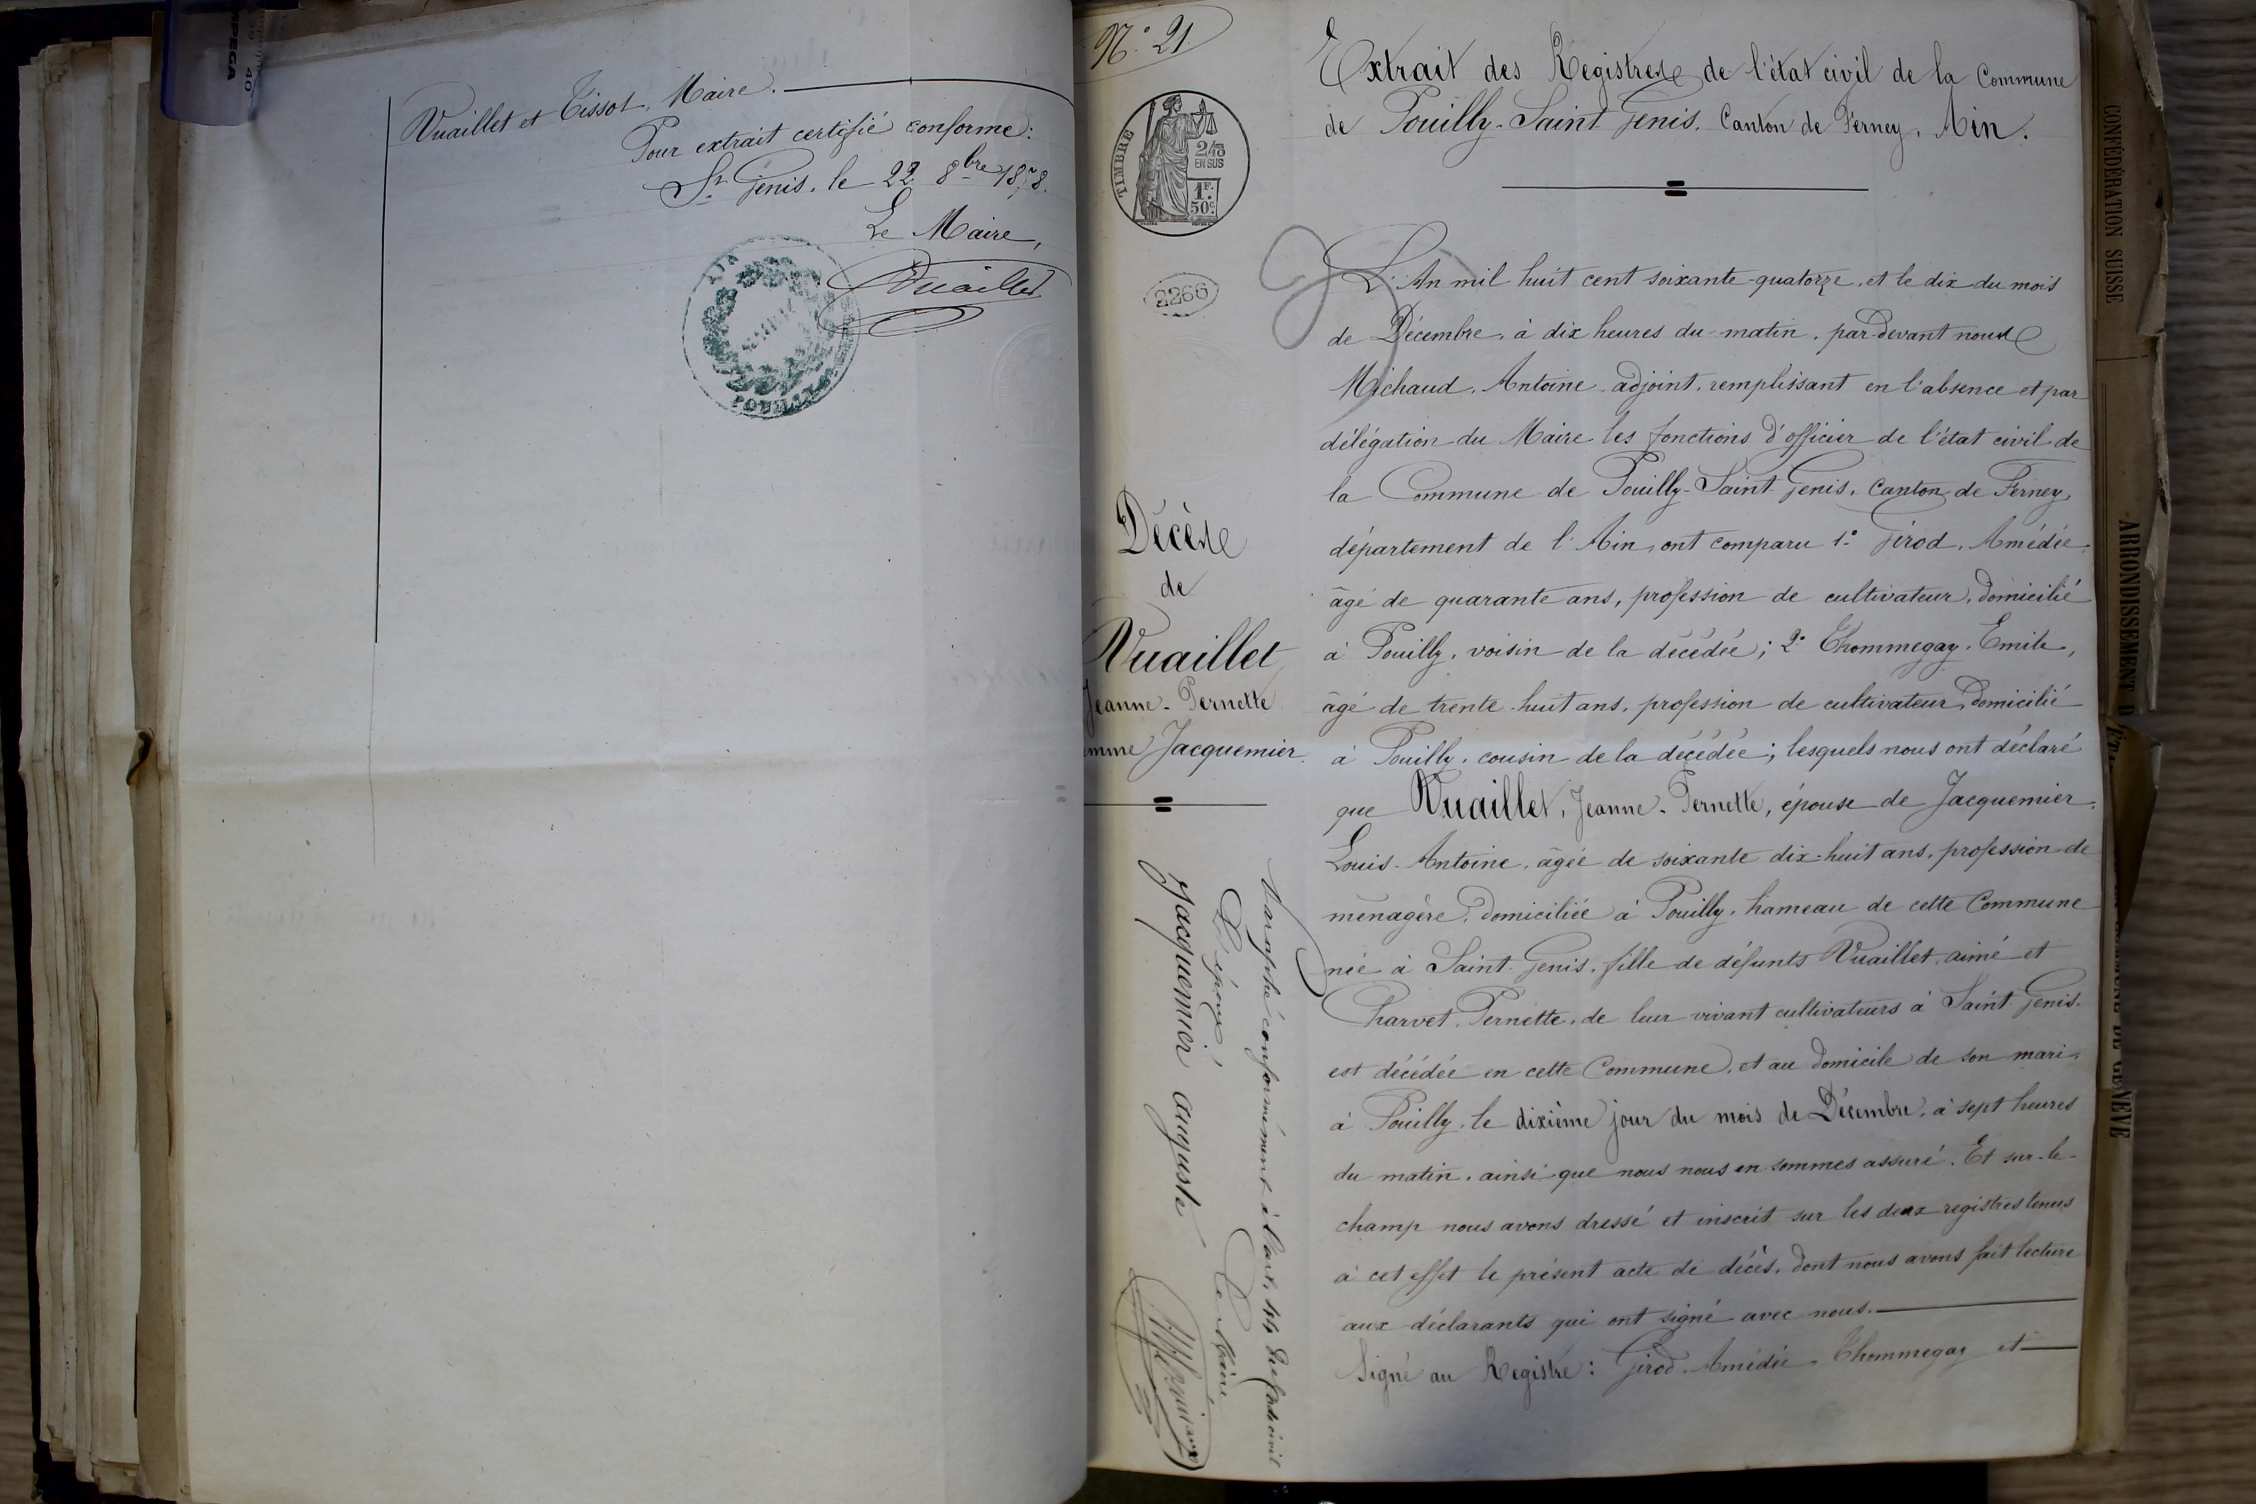 Vuaillet et Tissot, Maire.
Pour extrait certifié conforme:
St. Genis, le 22 8bre 1878.
Le Maire,
Vuaillet
AIN
N.° 21
TIMBRE
2/10
EN SUS
1F.
50c.
2266
Extrait des Registres de l'état civil de la Commune
de Pouilly-Saint Genis. Canton de Ferney, Ain.
L'An mil huit cent soixante-quatorze, et le dix du mois
de Décembre, à dix heures du matin, par-devant nous
Michaud, Antoine adjoint, remplissant en l'absence et par
délégation du Maire les fonctions d'officier de l'état civil de
la Commune de Pouilly-Saint Genis, Canton de Ferney,
département de l'Ain, ont comparu 1.° Girod, Amédée
âgé de quarante ans, profession de cultivateur, domicilié
à Pouilly, voisin de la décédée; 2° Thommegay, Emile,
âgé de trente-huit ans, profession de cultivateur, domicilié
à Pouilly, cousin de la décédée; lesquels nous ont déclaré
que Vuaillet, Jeanne-Pernette, épouse de Jacquemier
Louis-Antoine, âgée de soixante dix-huit ans, profession de
ménagère, domiciliée à Pouilly, hameau de cette Commune
née à Saint Genis, fille de défunts Vuaillet, aimé et
Charvet, Pernette, de leur vivant cultivateurs à Saint Genis.
est décédée en cette Commune, et au domicile de son mari
à Pouilly, le dixième jour du mois de Décembre, à sept heures
du matin, ainsi que nous nous en sommes assuré. Et sur-le-
champ nous avons dressé et inscrit sur les deux registres tenus
à cet effet le présent acte de décès, dont nous avons fait lecture
aux déclarants qui ont signé avec nous.
Signé au Registre: Girod Amédée, Thommegay et
Décès
de
Vuaillet
Jeanne-Pernette
mme Jacquemier.
Paraphé conformément à l'art. 44 du Code civil
L'époux, Le Maire
Jacquemier auguste
CONFÉDÉRATION SUISSE
ARRONDISSEMENT D'ÉT
DE GENÈVE